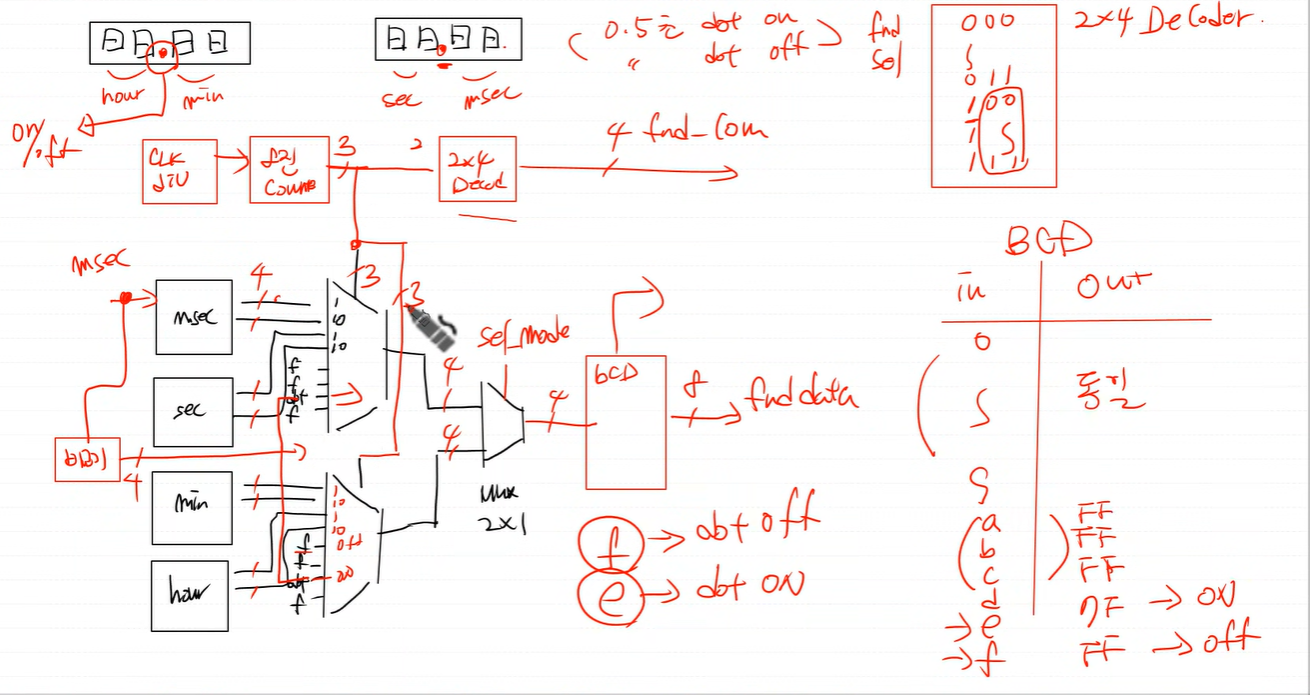 0.5초 dot on
〃 dot off
fnd
sel
000
2x4 Decoder.
011
100
1
1
111
hour
min
sec
msec
on/off
CLK
div
Count
3
2
2x4
Decod
4 fnd_com
msec
4
msec
sec
min
hour
4
1
10
1
10
f
f
dot
f
3
3
1
10
1
10
f
off
f
dot
on
f
4
4
sel_mode
Mux
2x1
4
bCD
8
fnd data
f → dot off
e → dot ON
BCD
in
out
0
동일
9
a FF
b FF
c FF
d
→ e 7F → ON
→ f FF → off